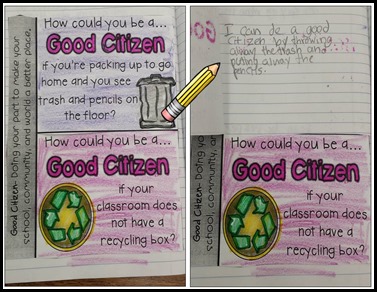 Good Citizen- Doing your part to make your
school, community, and world a better place.
How could you be a...
Good Citizen
if you're packing up to go
home and you see
trash and pencils on
the floor?
How could you be a...
Good Citizen
if your
classroom does
not have a
recycling box?
I can be a good
citizen by throwing
away the trash and
puting away the
pencils.
Good Citizen- Doing yo
school, community, a
How could you be a...
Good Citizen
if your
classroom does
not have a
recycling box?